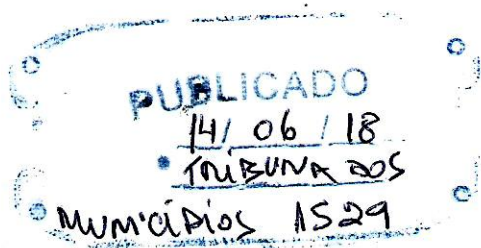 PUBLICADO
14/ 06 / 18
TRIBUNA DOS
MUNICÍPIOS 1529